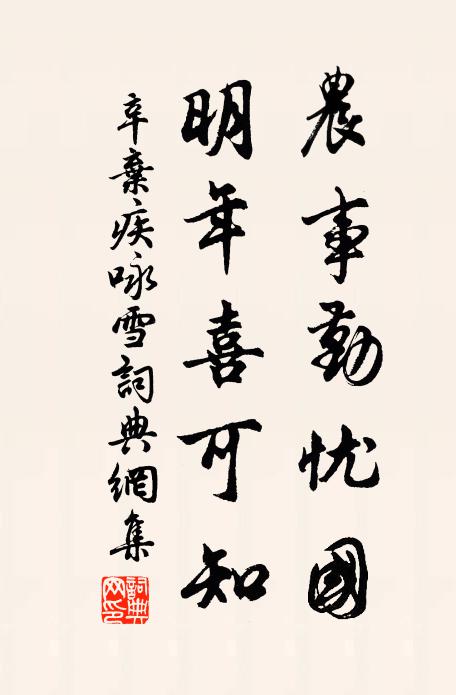 農事勤忧國
明年喜可知
辛棄疾咏雪詞典網集
詞典
网印